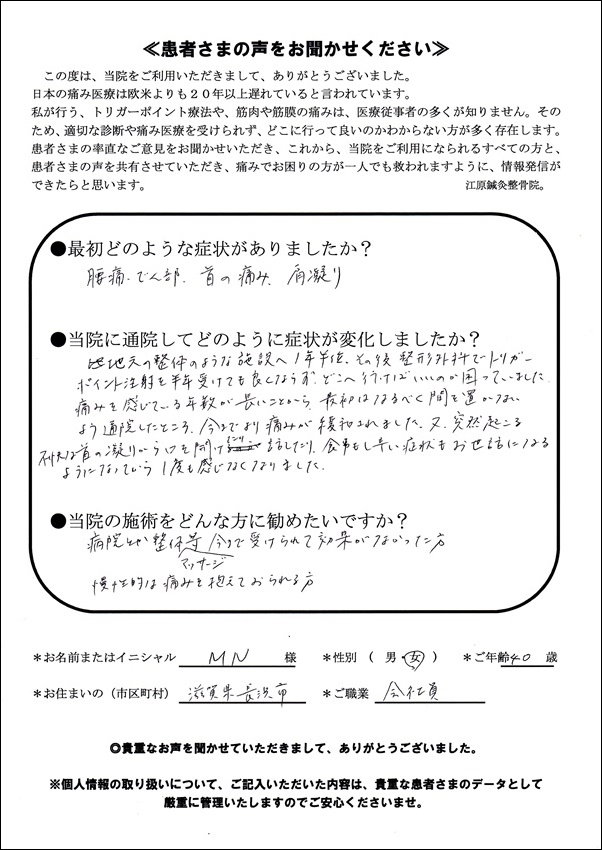 ≪患者さまの声をお聞かせください≫
この度は、当院をご利用いただきまして、ありがとうございました。
日本の痛み医療は欧米よりも２０年以上遅れていると言われています。
私が行う、トリガーポイント療法や、筋肉や筋膜の痛みは、医療従事者の多くが知りません。その
ため、適切な診断や痛み医療を受けられず、どこに行って良いのかわからない方が多く存在します。
患者さまの率直なご意見をお聞かせいただき、これから、当院をご利用になられるすべての方と、
患者さまの声を共有させていただき、痛みでお困りの方が一人でも救われますように、情報発信が
できたらと思います。 江原鍼灸整骨院。
●最初どのような症状がありましたか？
腰痛、でん部、首の痛み、肩凝り
●当院に通院してどのように症状が変化しましたか？
地元の整体のような施設へ1年半後、その後 整形外科でトリガー
ポイント注射を半年受けても良くならず、どこへ行けばいいのか困っていました
痛みを感じている年数が長いことから、最初はなるべく間を置かない
よう通院したところ、今までより痛みが緩和されました。又、突然起こる
首の凝りから口を開け 話したり、食事もし辛い症状もお世話になる
ようになってから 1度も感じなくなりました。
●当院の施術をどんな方に勧めたいですか？
病院とか整体等 今まで受けられて効果がなかった方
マッサージ
慢性的な痛みを抱えておられる方
＊お名前またはイニシャル MN 様 ＊性別（ 男・女 ） ＊ご年齢 40 歳
＊お住まいの（市区町村） 滋賀県長浜市 ＊ご職業 会社員
◎貴重なお声を聞かせていただきまして、ありがとうございました。
※個人情報の取り扱いについて、ご記入いただいた内容は、貴重な患者さまのデータとして
厳重に管理いたしますのでご安心くださいませ。